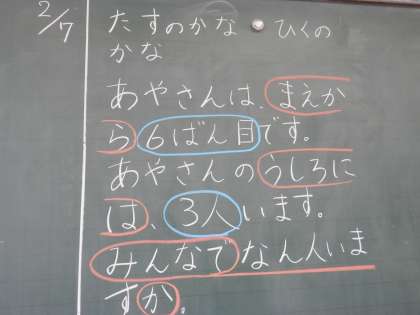 2/7
たすのかな ひくの
かな
あやさんは、まえか
ら6ばん目です。
あやさんのうしろに
は、3人います。
みんなでなん人いま
すか。